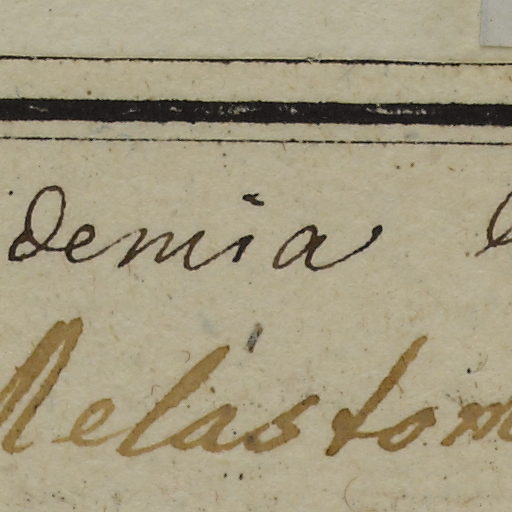 demia
Melastom